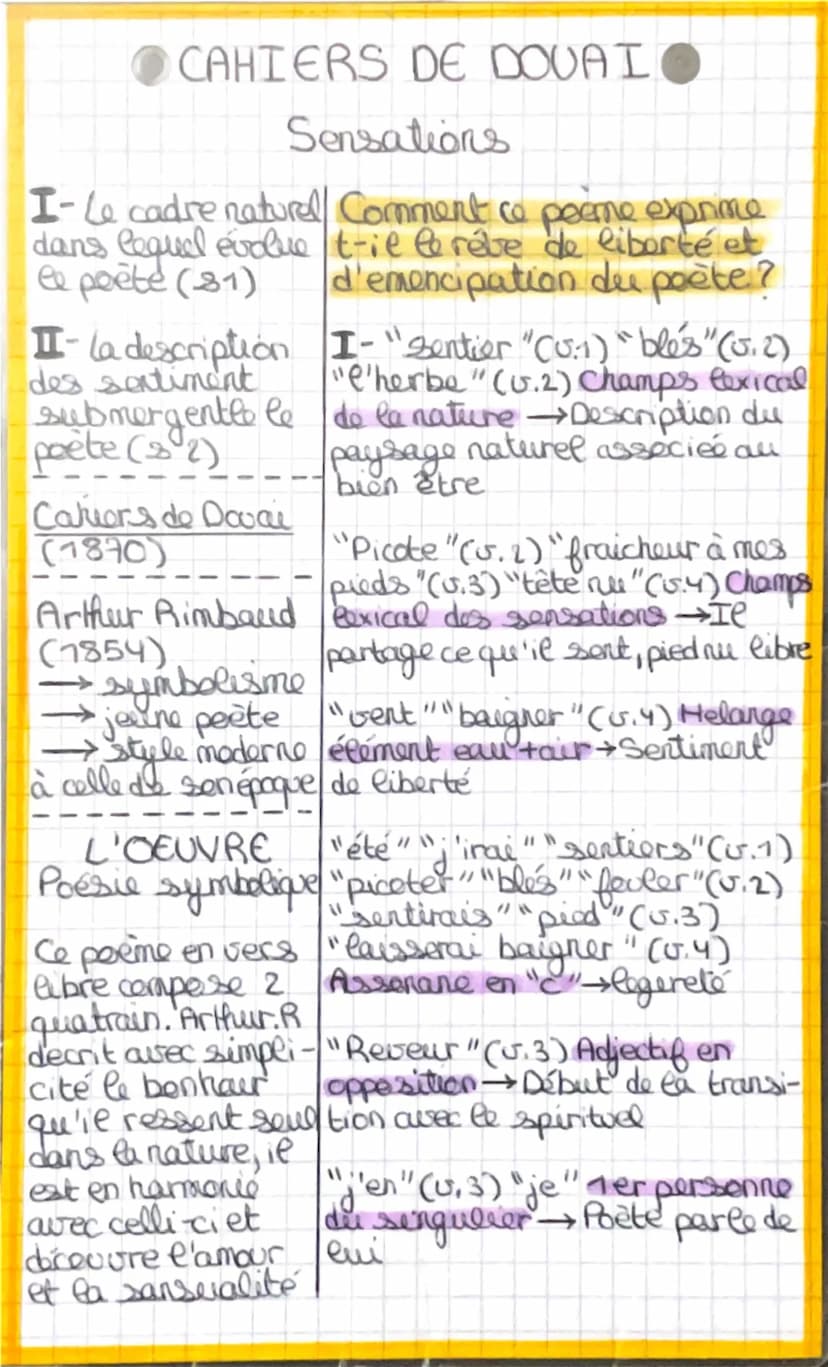 CAHIERS DE DOUAI
Sensations
I- Le cadre naturel
dans lequel évolue
le poète (s1)
II- la description
des sentiment
submergentle le
poète (s 2)
Cahiers de Douai
(1870)
Arthur Rimbaud
(1854)
→ symbolisme
→ jeune poète
→ style moderne
à celle de son époque
L'OEUVRE
Poésie symbolique
Ce poème en vers
libre compose 2
quatrain. Arthur.R
decrit avec simpli-
cité le bonheur
qu'il ressent seul
dans la nature, il
est en harmonie
avec celli-ci et
découvre l'amour
et la sensualité
Comment ce poème exprime
t-il le rêve de liberté et
d'emencipation du poète?
I- "sentier" (v.1) "blés" (v.2)
"l'herbe" (v.2) Champs lexical
de la nature → Description du
paysage naturel associeé au
bien être
"Picote" (v.2) "fraicheur à mes
pieds" (v.3) "tête nu" (v.4) Champs
lexical des sensations → Il
partage ce qu'il sent, pied nu libre
"vent" "baigner" (v.4) Melange
élément eau + air → Sentiment
de liberté
"été" "j'irai" "sentiers" (v.1)
"picoter" "blés" "fouler" (v.2)
"sentirais" "pied" (v.3)
"laisserai baigner" (v.4)
Assonane en "é" → legereté
"Reveur" (v.3) Adjectif en
opposition → Début de la transi-
tion avec le spirituel
"j'en" (v,3) "je" 1er personne
du singulier → Poète parle de
lui